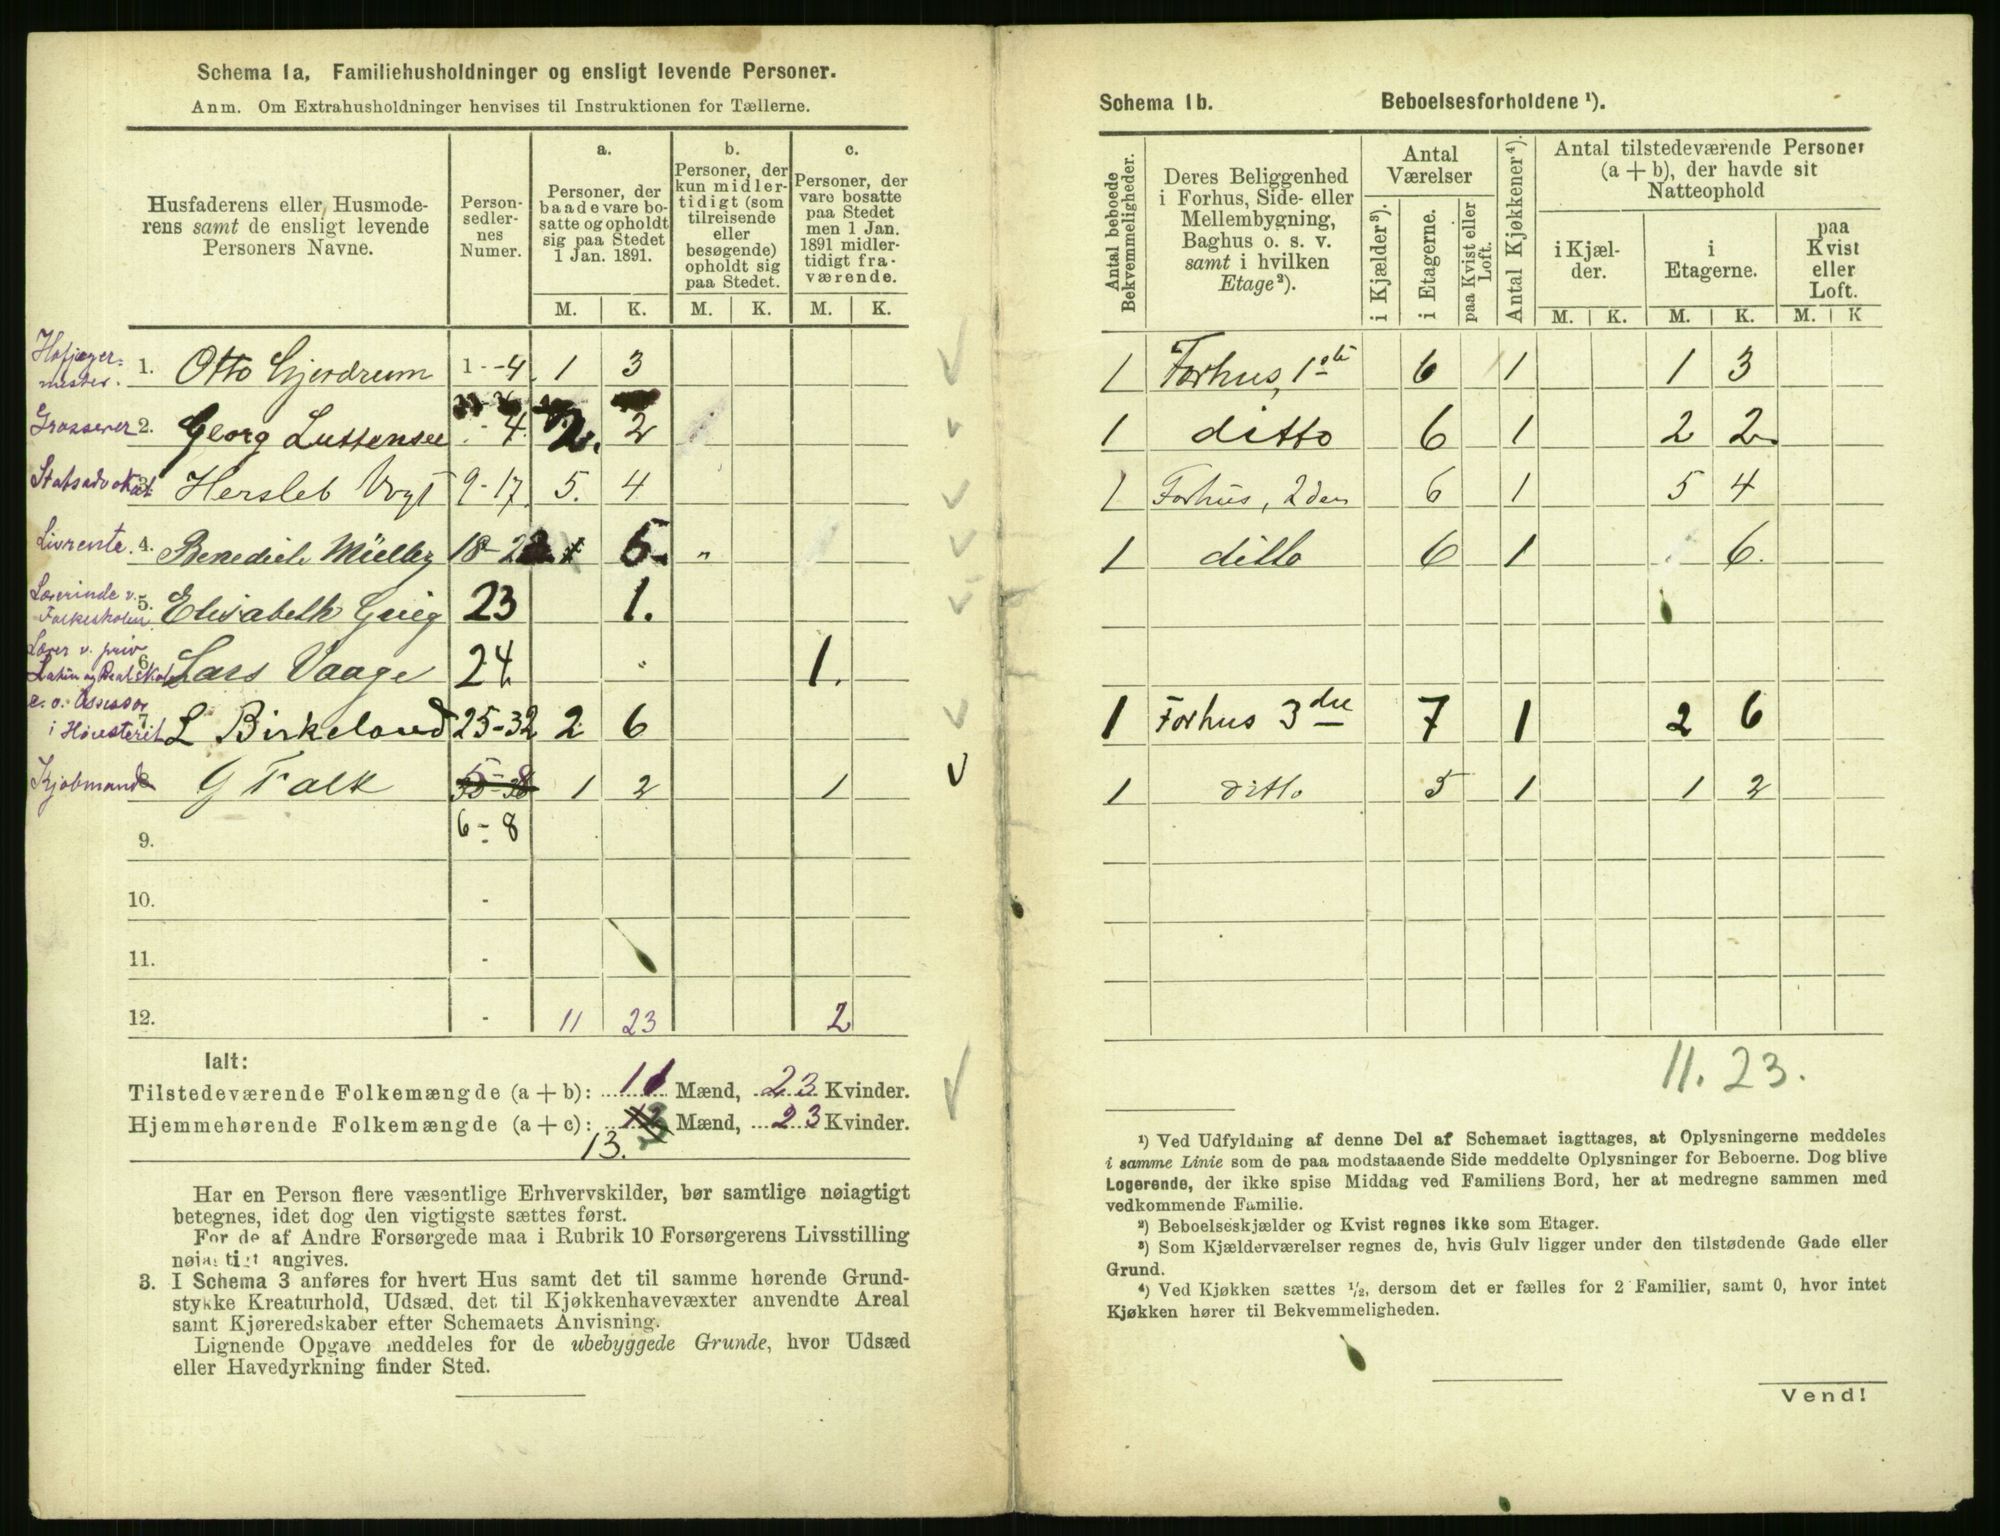 Schema 1a, Familiehusholdninger og ensligt levende Personer.
Anm. Om Extrahusholdninger henvises til Instruktionen for Tællerne.
Husfaderens eller Husmode-
rens samt de ensligt levende
Personers Navne.
Person-
sedler-
nes
Numer.
a.
Personer, der
baade vare bo-
satte og opholdt
sig paa Stedet
1 Jan. 1891.
b.
Personer, der
kun midler-
tidigt (som
tilreisende
eller
besøgende)
opholdt sig
paa Stedet.
c.
Personer, der
vare bosatte
paa Stedet
men 1 Jan.
1891 midler-
tidigt fra-
værende.
M. K. M. K. M. K.
Hofjæger-
mester. 1. Otto Gjerdrum 1 - 4. 1 3
Grosserer 2. Georg Luttensee - 4. 2. 2
Statsadvokat 3. Hersleb Vogt 9-17. 5. 4
Livrente. 4. Benedicte Müller 18-22 5. "
Lærerinde v.
Folkeskolen. 5. Elisabeth Grieg 23 1.
Lærer v. priv
Latin og Realskole 6. Lars Vaage 24 1.
e. o. Assessor
i Høiesteret 7. L Birkeland 25-32 2 6
Kjøbmand 8. G Falk 1 2 1
9. 6-8
10. -
11. -
12. - 11 23 2
Ialt:
Tilstedeværende Folkemængde (a + b): 11 Mænd, 23 Kvinder.
Hjemmehørende Folkemængde (a + c): Mænd, 23 Kvinder.
13.
Har en Person flere væsentlige Erhvervskilder, bør samtlige nøiagtigt
betegnes, idet dog den vigtigste sættes først.
For de af Andre Forsørgede maa i Rubrik 10 Forsørgerens Livsstilling
nøiagtigt angives.
3. I Schema 3 anføres for hvert Hus samt det til samme hørende Grund-
stykke Kreaturhold, Udsæd, det til Kjøkkenhavevæxter anvendte Areal
samt Kjøreredskaber efter Schemaets Anvisning.
Lignende Opgave meddeles for de ubebyggede Grunde, hvor Udsæd
eller Havedyrkning finder Sted.
Schema 1b. Beboelsesforholdene ¹).
Antal beboede
Bekvemmeligheder.
Deres Beliggenhed
i Forhus, Side- eller
Mellembygning,
Baghus o. s. v.
samt i hvilken
Etage²).
Antal
Værelser
i Kjælder³).
i Etagerne.
paa Kvist eller
Loft.
Antal Kjøkkener⁴).
Antal tilstedeværende Personer
(a + b), der havde sit
Natteophold
i Kjæl-
der.
i
Etagerne.
paa
Kvist
eller
Loft.
M. K. M. K. M. K
1 Forhus, 1ste 6 1 1 3
1 ditto 6 1 2 2
1 Forhus, 2den 6 1 5 4
1 ditto 6 1 6.
1 Forhus 3die 7 1 2 6
1 ditto 5 1 1 2
11. 23.
¹) Ved Udfyldning af denne Del af Schemaet iagttages, at Oplysningerne meddeles
i samme Linie som de paa modstaaende Side meddelte Oplysninger for Beboerne. Dog blive
Logerende, der ikke spise Middag ved Familiens Bord, her at medregne sammen med
vedkommende Familie.
²) Beboelseskjælder og Kvist regnes ikke som Etager.
³) Som Kjælderværelser regnes de, hvis Gulv ligger under den tilstødende Gade eller
Grund.
⁴) Ved Kjøkken sættes ½, dersom det er fælles for 2 Familier, samt 0, hvor intet
Kjøkken hører til Bekvemmeligheden.
Vend!